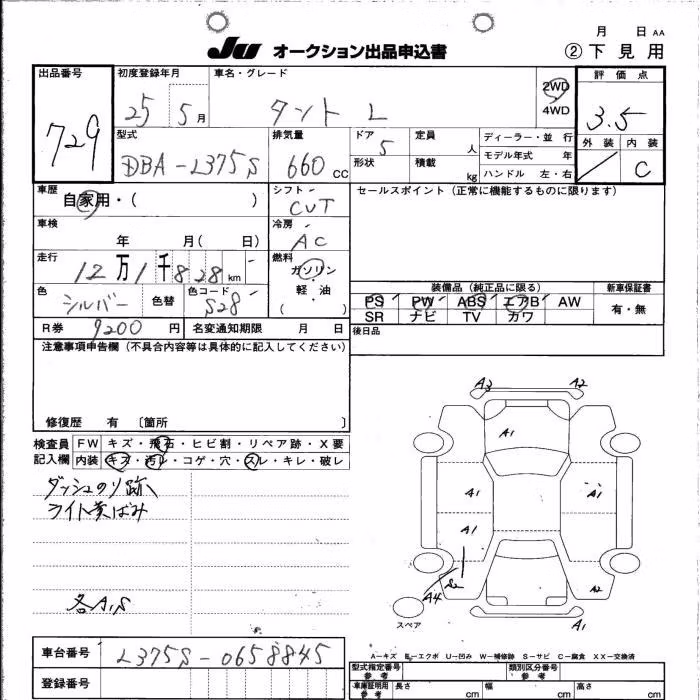 月 日 AA
JU オークション出品申込書 ②下見用
出品番号 初度登録年月 車名・グレード 2WD 4WD 評価点
729 25 5月 タント L 3.5
型式 排気量 ドア 定員 人 ディーラー・並行 外装 内装
DBA-L375S 660 cc 5 モデル年式 年 C
形状 積載 kg ハンドル 左・右
車歴 自家用・( ) シフト CVT セールスポイント(正常に機能するものに限ります)
車検 年 月( 日) 冷房 AC
走行 12万1千828km 燃料 ガソリン 軽・油 ( )
色 シルバー 色替 色コード S28 装備品(純正品に限る) 新車保証書
PS PW ABS エアB AW 有・無
SR ナビ TV カワ
R券 9200 円 名変通知期限 月 日 後日品
注意事項申告欄(不具合内容等は具体的に記入してください)
修復歴 有 〔箇所 〕
検査員 FW キズ・飛石・ヒビ割・リペア跡・X要
記入欄 内装 キズ・汚レ・コゲ・穴・スレ・キレ・破レ
ダッシュのり跡
ライト黄ばみ
各A,S
A3 A2
A1
A1 A1
A1
A4 S2 A2
スペア A1
A-キズ E-エクボ U-凹み W-補修跡 S-サビ C-腐食 XX-交換済
車台番号 L375S-0658845
型式指定番号 参考 類別区分番号 参考
登録番号
車庫証明用 参考 長さ cm 幅 cm 高さ cm